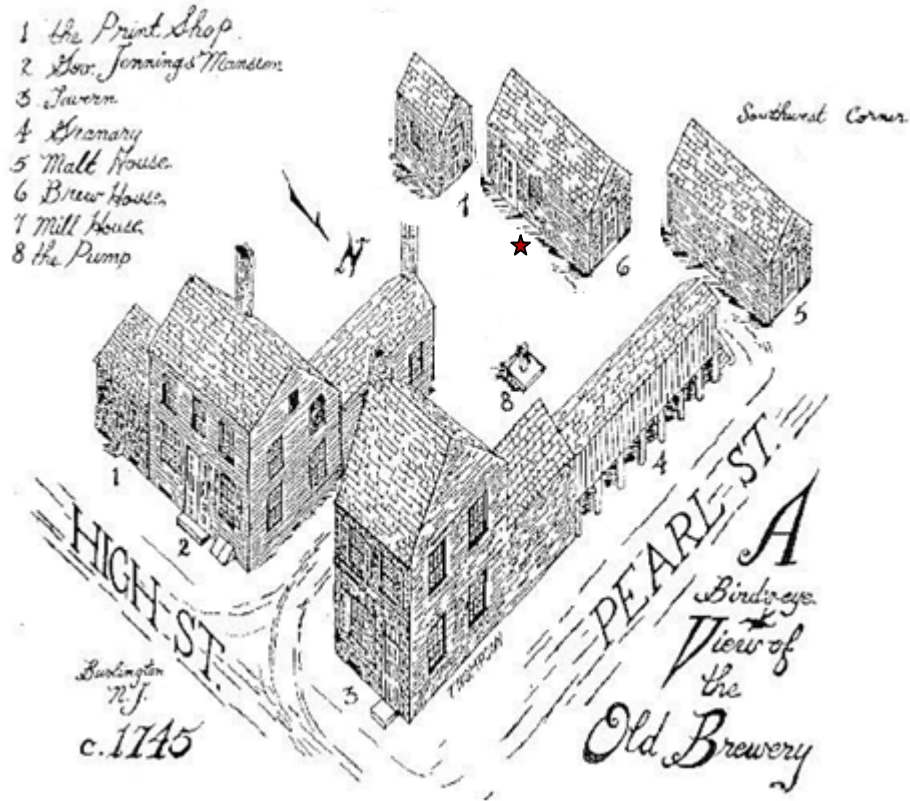 1 the Print Shop.
2 Gov. Jennings' Mansion
3 Tavern
4 Granary
5 Malt House
6 Brew House
7 Mill House
8 the Pump
Southwest Corner
7
6
5
N
8
4
1
2
3
HIGH-ST.
PEARL-ST.
THOMPSON
Burlington
N.J.
c.1745
A
Birds-eye
View of
the
Old Brewery